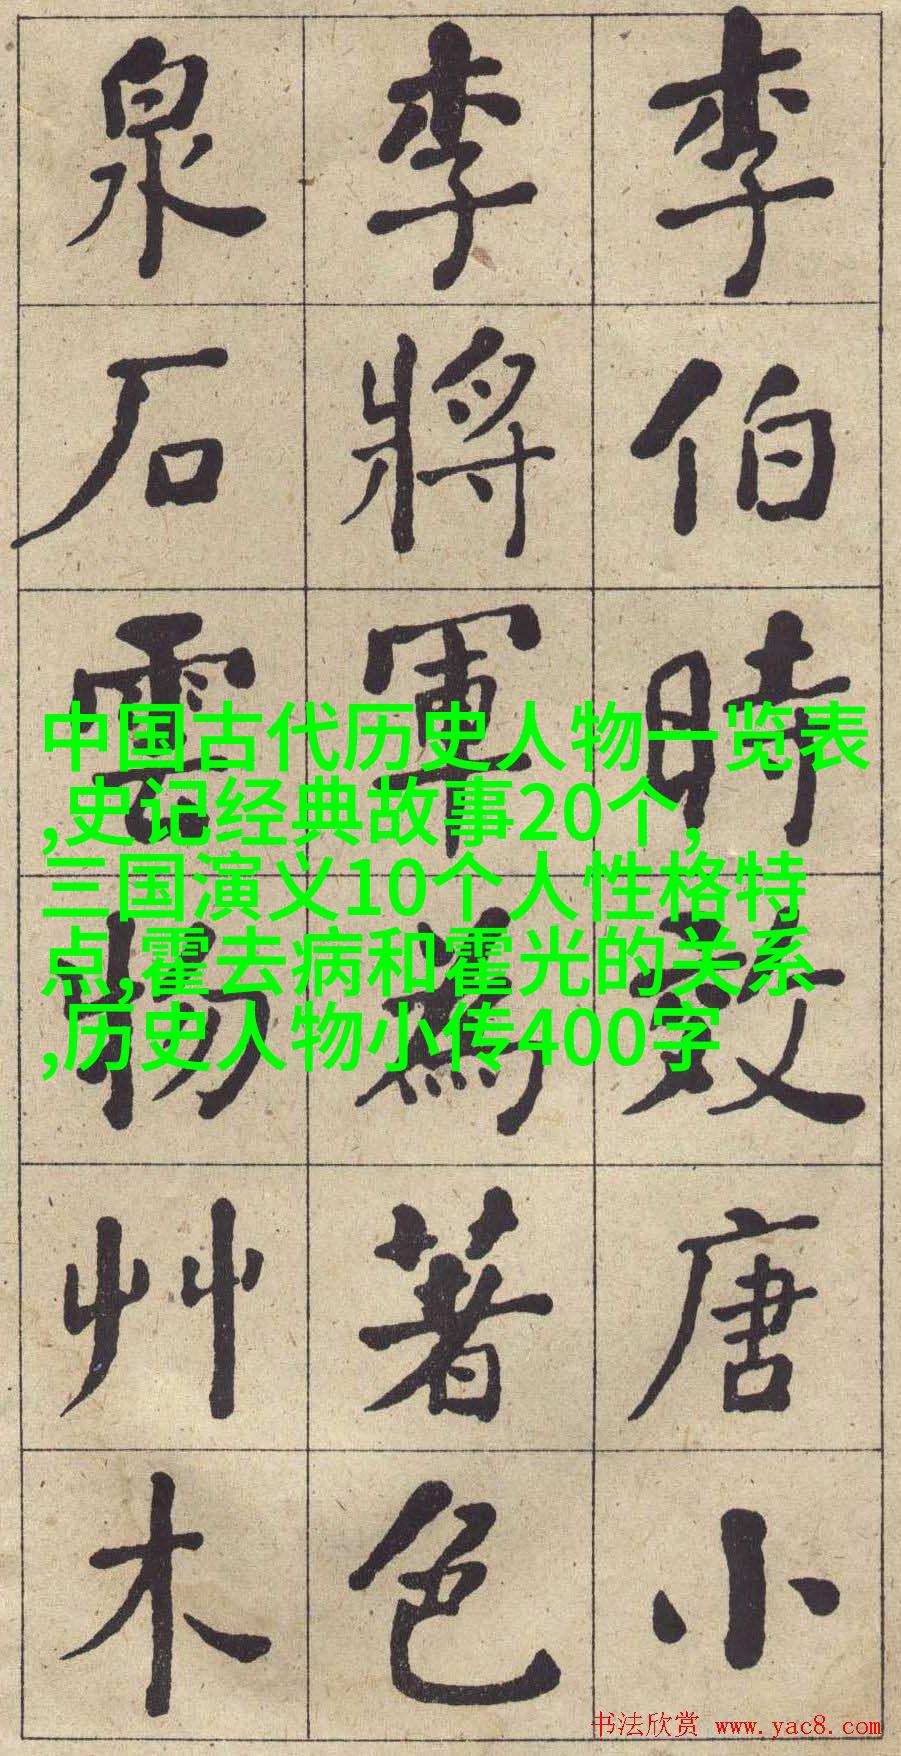 李伯時效唐小
李將軍為著色
泉石雲物艸木
中国古代历史人物一览表
,史记经典故事20个,
三国演义10个人性格特
点,霍去病和霍光的关系
,历史人物小传400字
书法欣赏 www.yac8.com